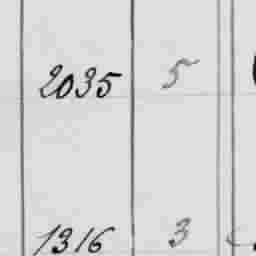 2035 5
1316 3